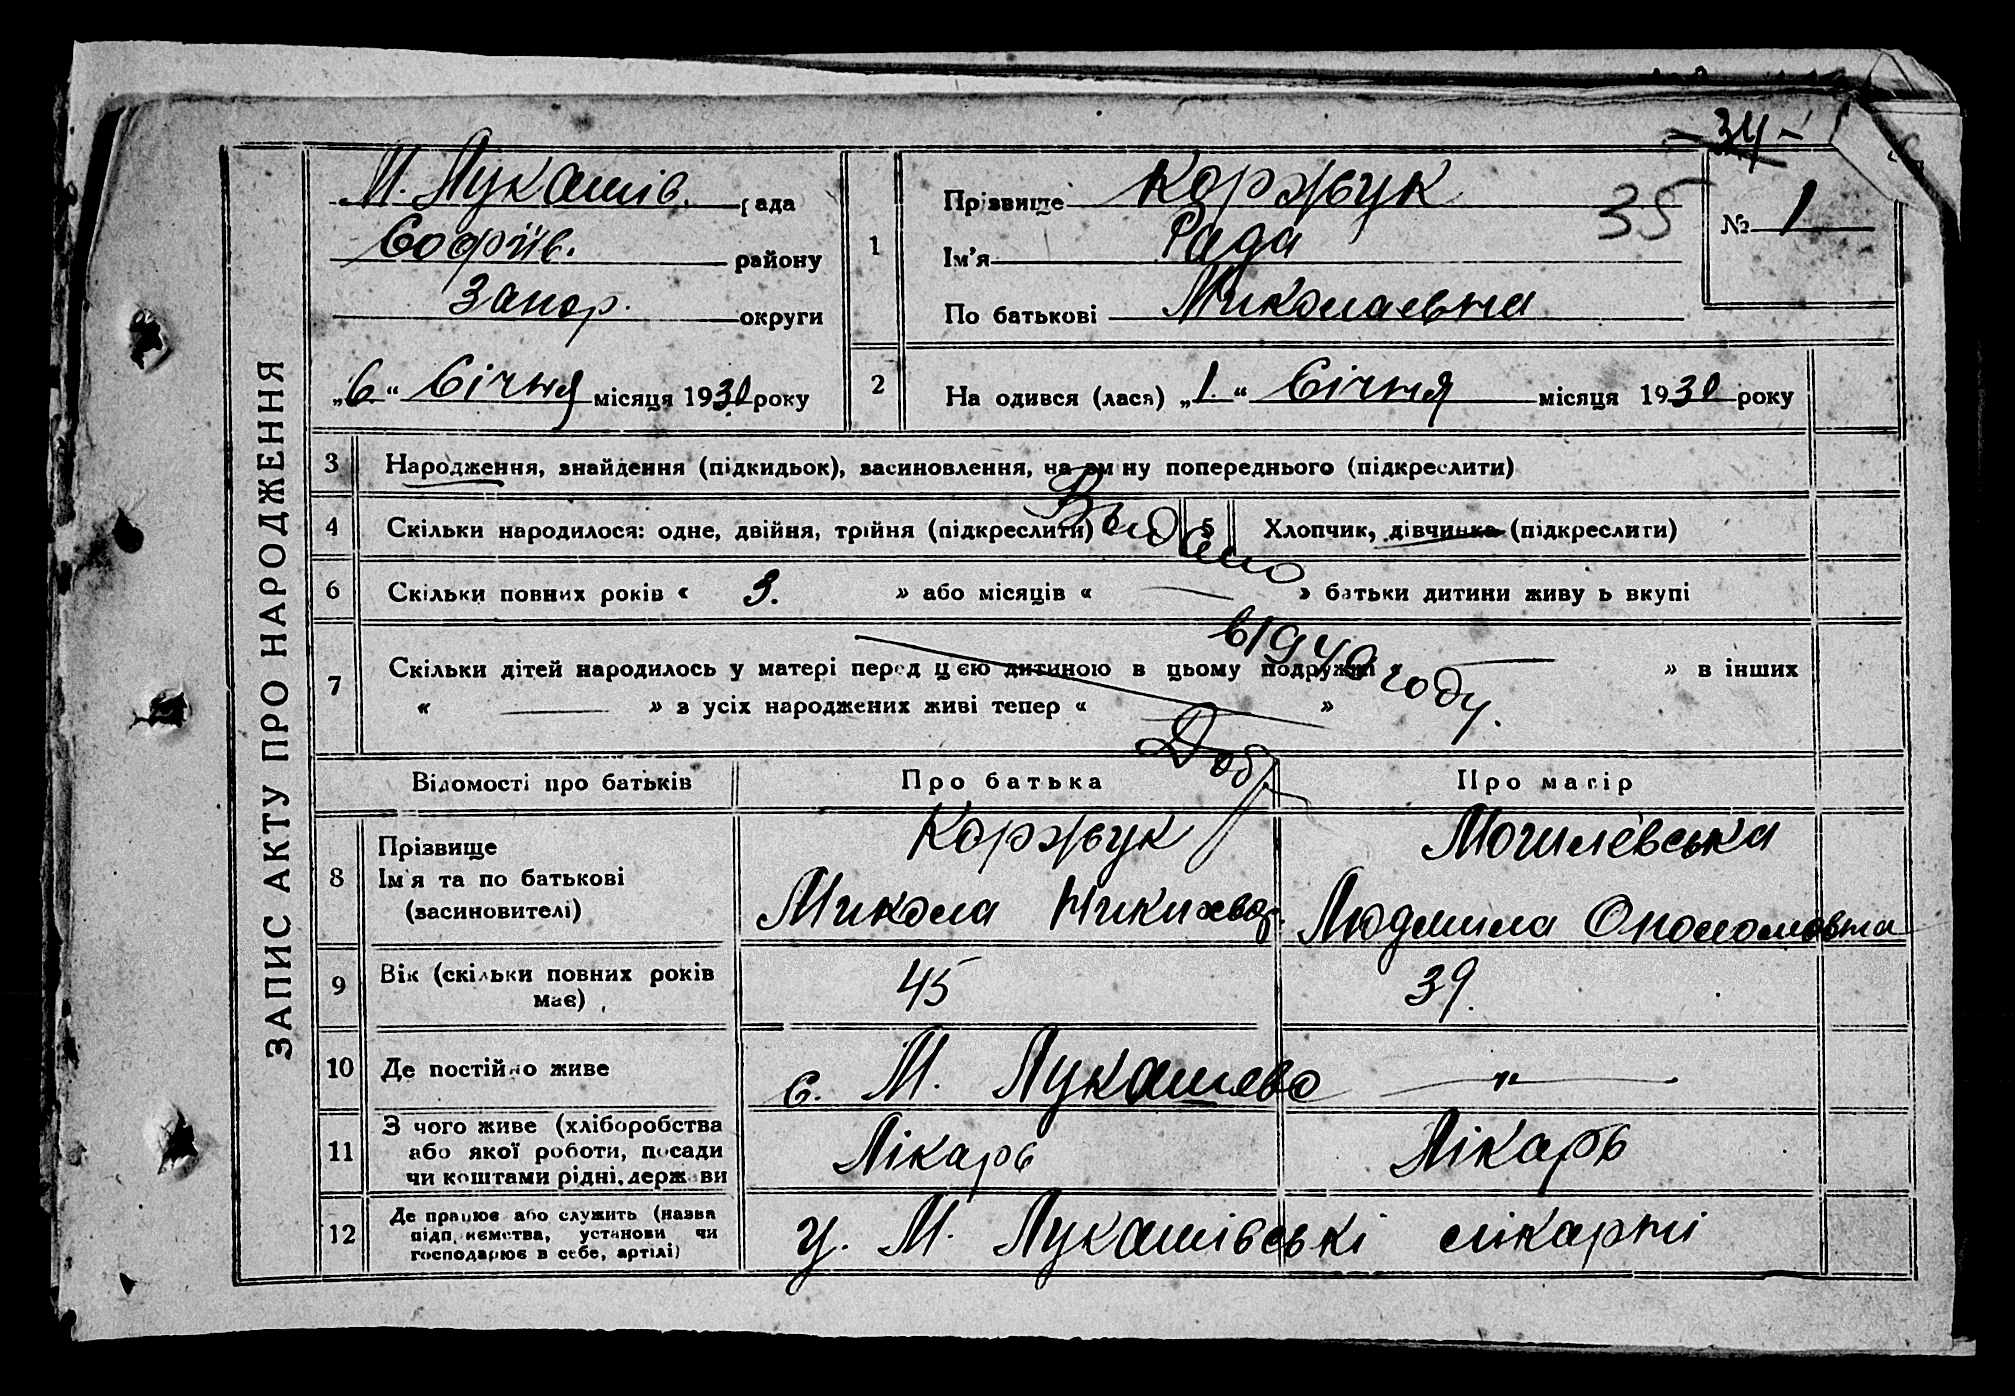 - 34 -
35
ЗАПИС АКТУ ПРО НАРОДЖЕННЯ
М. Лукашів. рада
Софіїв. району
Запор. округи
„6“ Січня місяця 1930 року
1
Прізвище Коржук
Ім'я Рада
По батькові Миколаевна
№ 1
2
На одився (лася) „1.“ Січня місяця 1930 року
3 Народження, знайдення (підкидьок), васиновлення, на зм ну попереднього (підкреслити)
4 Скільки народилося: одне, двійня, трійня (підкреслити) 5 Хлопчик, дівчинка (підкреслити)
Выдано
6 Скільки повних років « 3. » або місяців « — » батьки дитини живу ь вкупі
в 1949 году.
7 Скільки дітей народилось у матері перед цією дитиною в цьому подружжі « — » в інших
« — » з усіх народжених живі тепер « — »
Відомості про батьків Про батька Про матір
8 Прізвище Коржук Могилевська
Ім'я та по батькові
(васиновителі) Микола Никихвор. Людмила
9 Вік (скільки повних років
має) 45 39.
10 Де постійно живе с. М. Лукашево — " —
11 З чого живе (хліборобства
або якої роботи, посади
чи коштами рідні, держави Лікарь Лікарь
12 Де працює або служить (назва
підприємства, установи чи
господарює в себе, артілі) у. М. Лукашівські лікарні